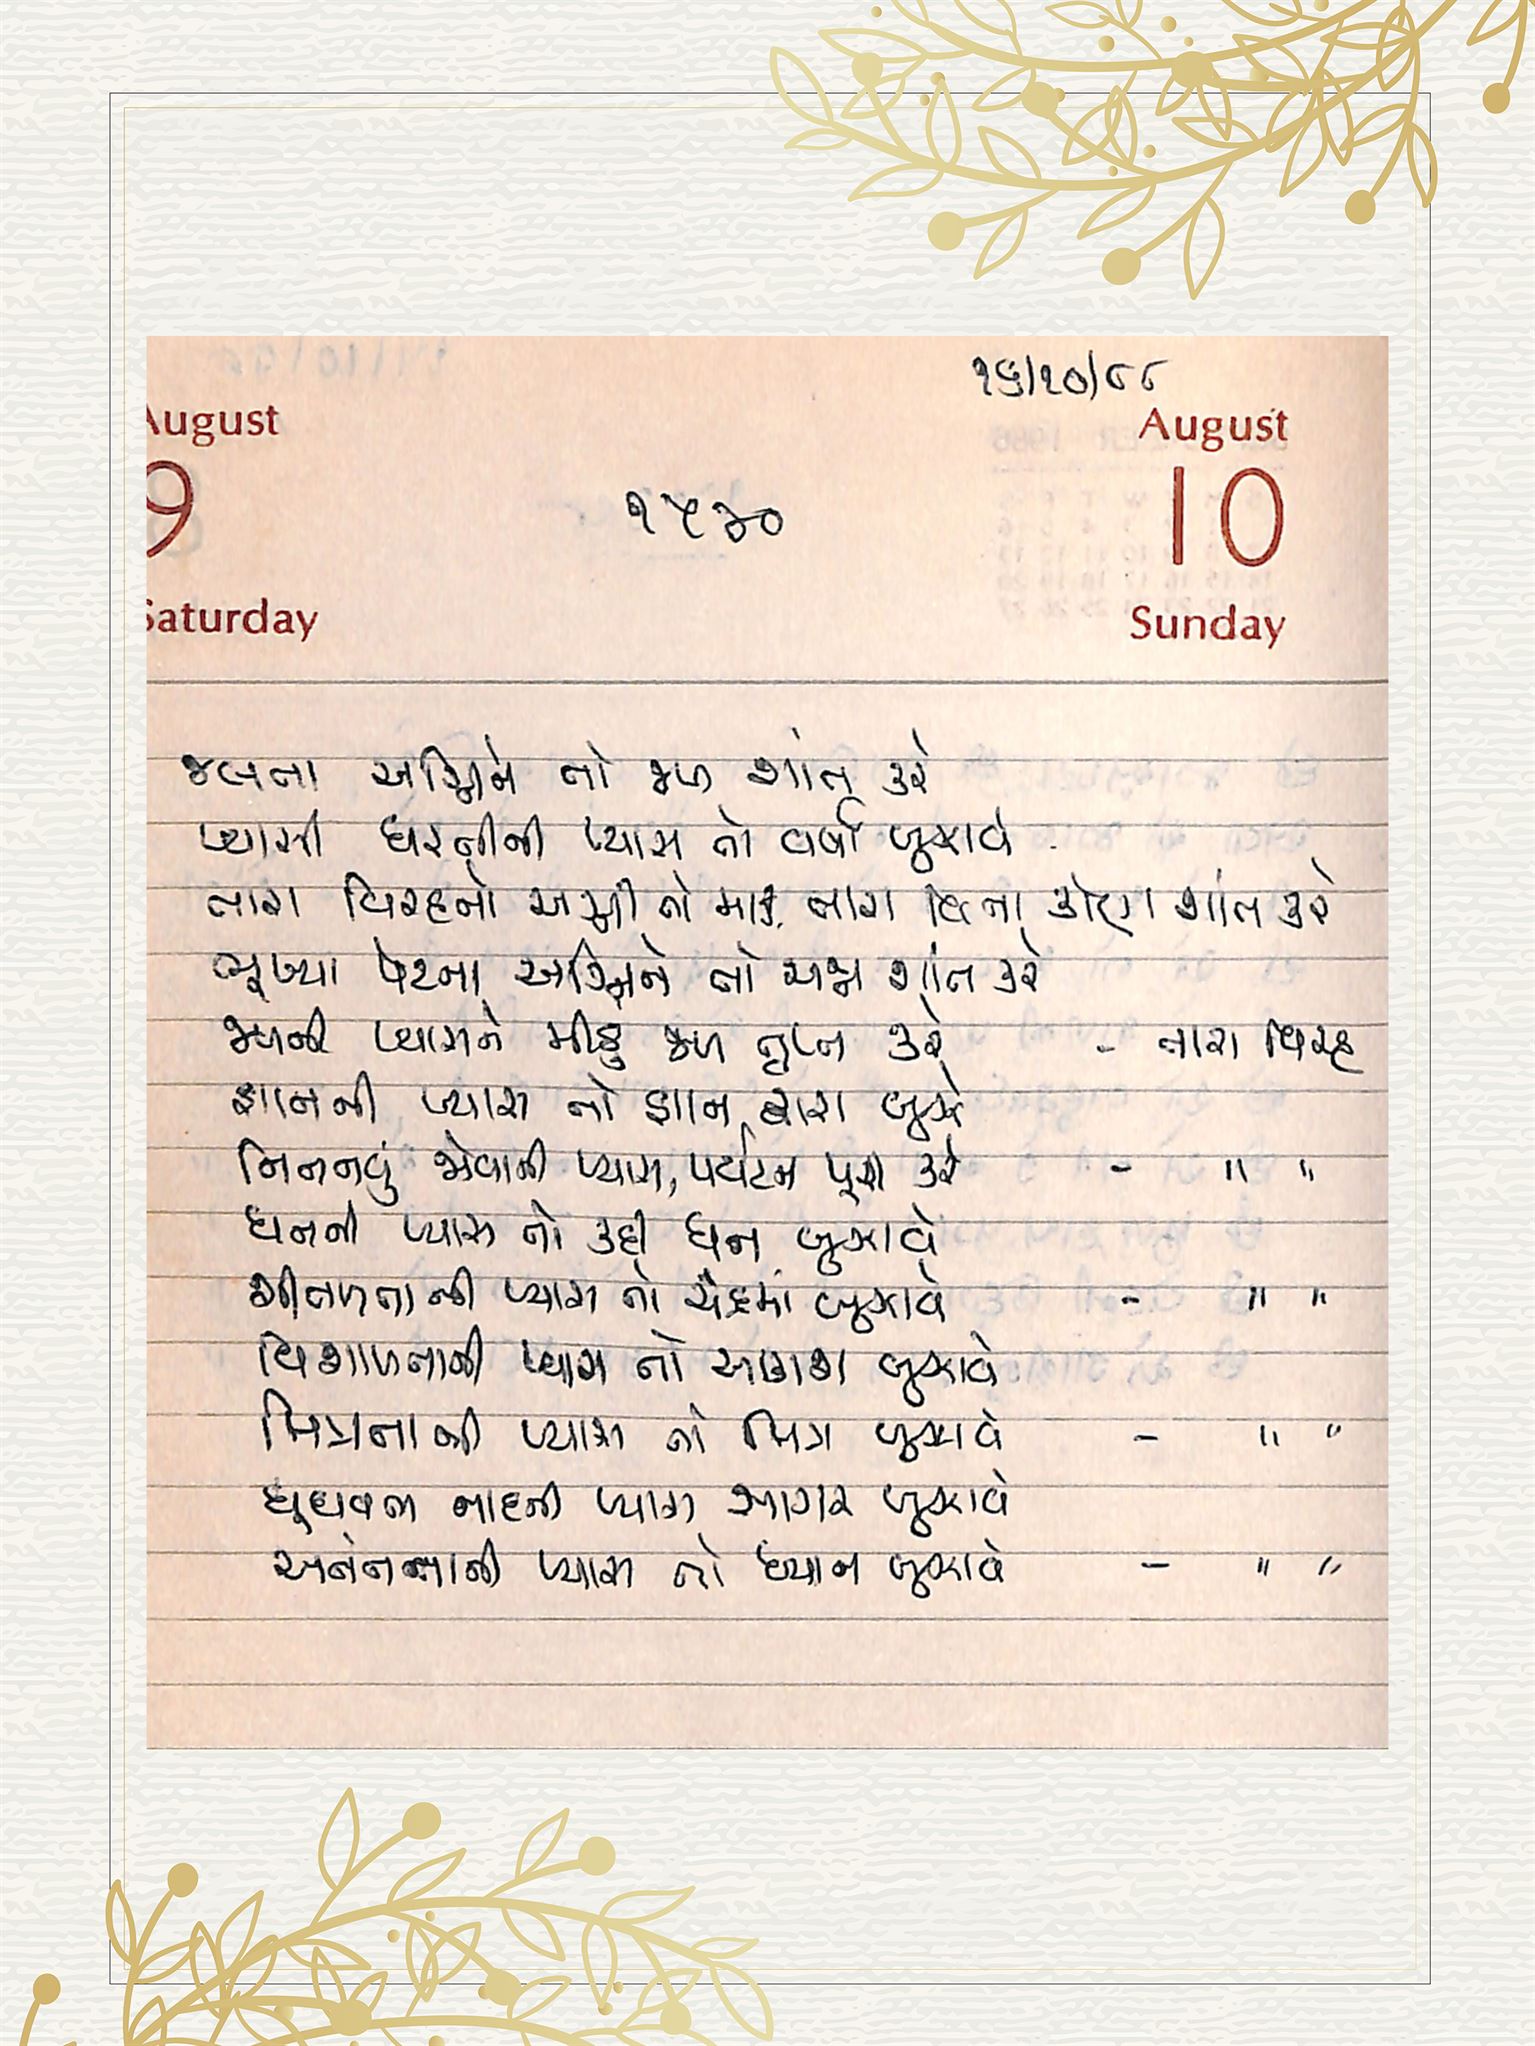 ૧૬/૧૦/૮૮
August
9
Saturday
૧૫૩૦
August
10
Sunday
જલતા અગ્નિને તો જળ શાંત કરે
પ્યાસી ધરતીની પ્યાસ તો વર્ષા બુઝાવે
તારા વિરહનો અગ્ની તો માડી તારા વિના કોણ શાંત કરે
ભૂખ્યા પેટના અગ્નિને તો અન્ન શાંત કરે
જળની પ્યાસને મીઠું જળ તૃપ્ત કરે - તારા વિરહ
જ્ઞાનની પ્યાસ તો જ્ઞાન દ્વારા બુઝે
નિતનવું જોવાની પ્યાસ, પર્યટન પૂરી કરે - " "
ધનની પ્યાસ તો કદી ધન બુઝાવે
શીતળતાની પ્યાસ તો ચંદ્રમાં બુઝાવે - " "
વિશાળતાની પ્યાસ તો આકાશ બુઝાવે
મિત્રતાની પ્યાસ તો મિત્ર બુઝાવે - " "
ઘુઘવતા નાદની પ્યાસ સાગર બુઝાવે
અનંતતાની પ્યાસ તો ધ્યાન બુઝાવે - " "